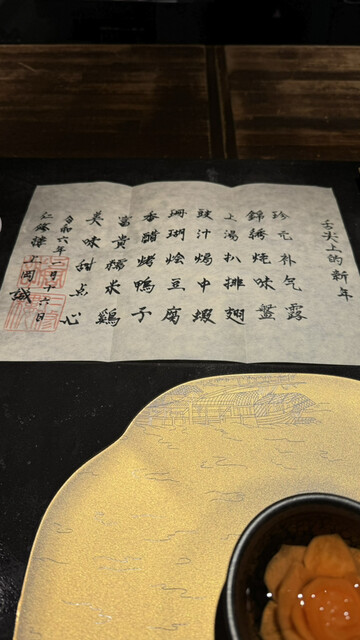 舌尖上的新年
珍元朴气露
錦綉炖味盤
上湯扒排翅
豉汁焗中蝦
珊瑚燴豆腐
香醋烤鴨子
富貴糯米鷄
美味甜点心
令和六年二月十六日
仁修樓 上岡誠